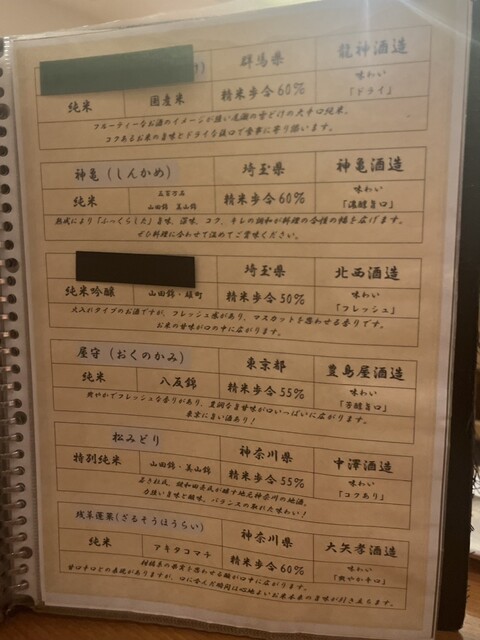 群馬県 龍神酒造
純米 国産米 精米歩合60% 味わい「ドライ」
フルーティーなお酒のイメージが強い尾瀬の雪どけの大辛口純米。
コクあるお米の旨味とドライな後口で食事に寄り添います。
神亀(しんかめ) 埼玉県 神亀酒造
純米 五百万石 山田錦 美山錦 精米歩合60% 味わい「濃醇旨口」
熟成により「ふっくらした」旨味、深味、コク、キレの調和が料理の合性の幅を広げます。
ぜひ料理に合わせて温めてご賞味ください。
埼玉県 北西酒造
純米吟醸 山田錦・雄町 精米歩合50% 味わい「フレッシュ」
火入れタイプのお酒ですが、フレッシュ感があり、マスカットを思わせる香りです。
お米の甘味が口の中に広がります。
屋守(おくのかみ) 東京都 豊島屋酒造
純米 八反錦 精米歩合55% 味わい「芳醇旨口」
爽やかでフレッシュな香りがあり、豊潤な旨甘味が口いっぱいに広がります。
東京に旨い酒あり!
松みどり 神奈川県 中澤酒造
特別純米 山田錦・美山錦 精米歩合55% 味わい「コクあり」
が醸す地元神奈川の地酒。
力強い旨味と酸味。バランスの取れた味わい!
残草蓬莱(ざるそうほうらい) 神奈川県 大矢孝酒造
純米 アキタコマチ 精米歩合60% 味わい「爽やか辛口」
柑橘系の果実を思わせる酸が口中に広がります。
甘口辛口との表現がありますが、口に含んだ瞬間は心地よいお米本来の旨味が引き立ちます。